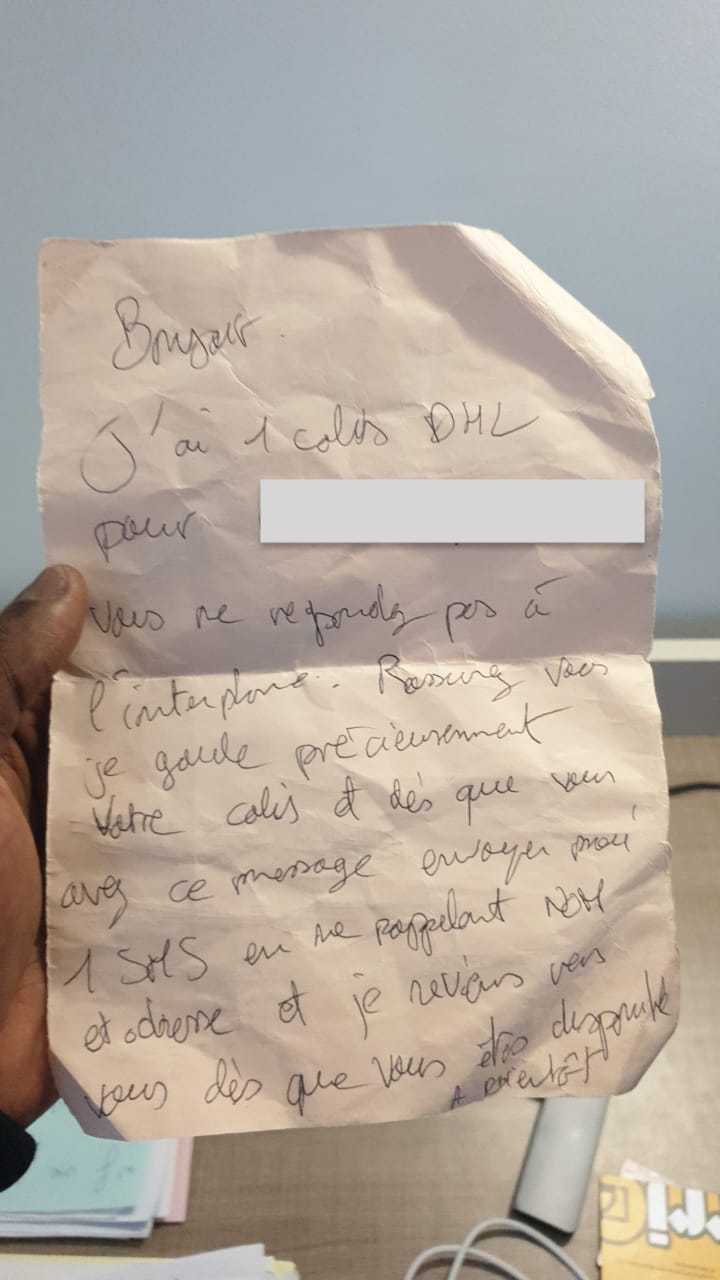 Bonjour
J'ai 1 colis DHL
pour
vous ne répondez pas à
l'interphone. Rassurez vous
je garde précieusement
votre colis et dès que vous
avez ce message envoyer moi
1 SMS en me rappelant NOM
et adresse et je reviens vers
vous dès que vous êtes disponible
A bientôt